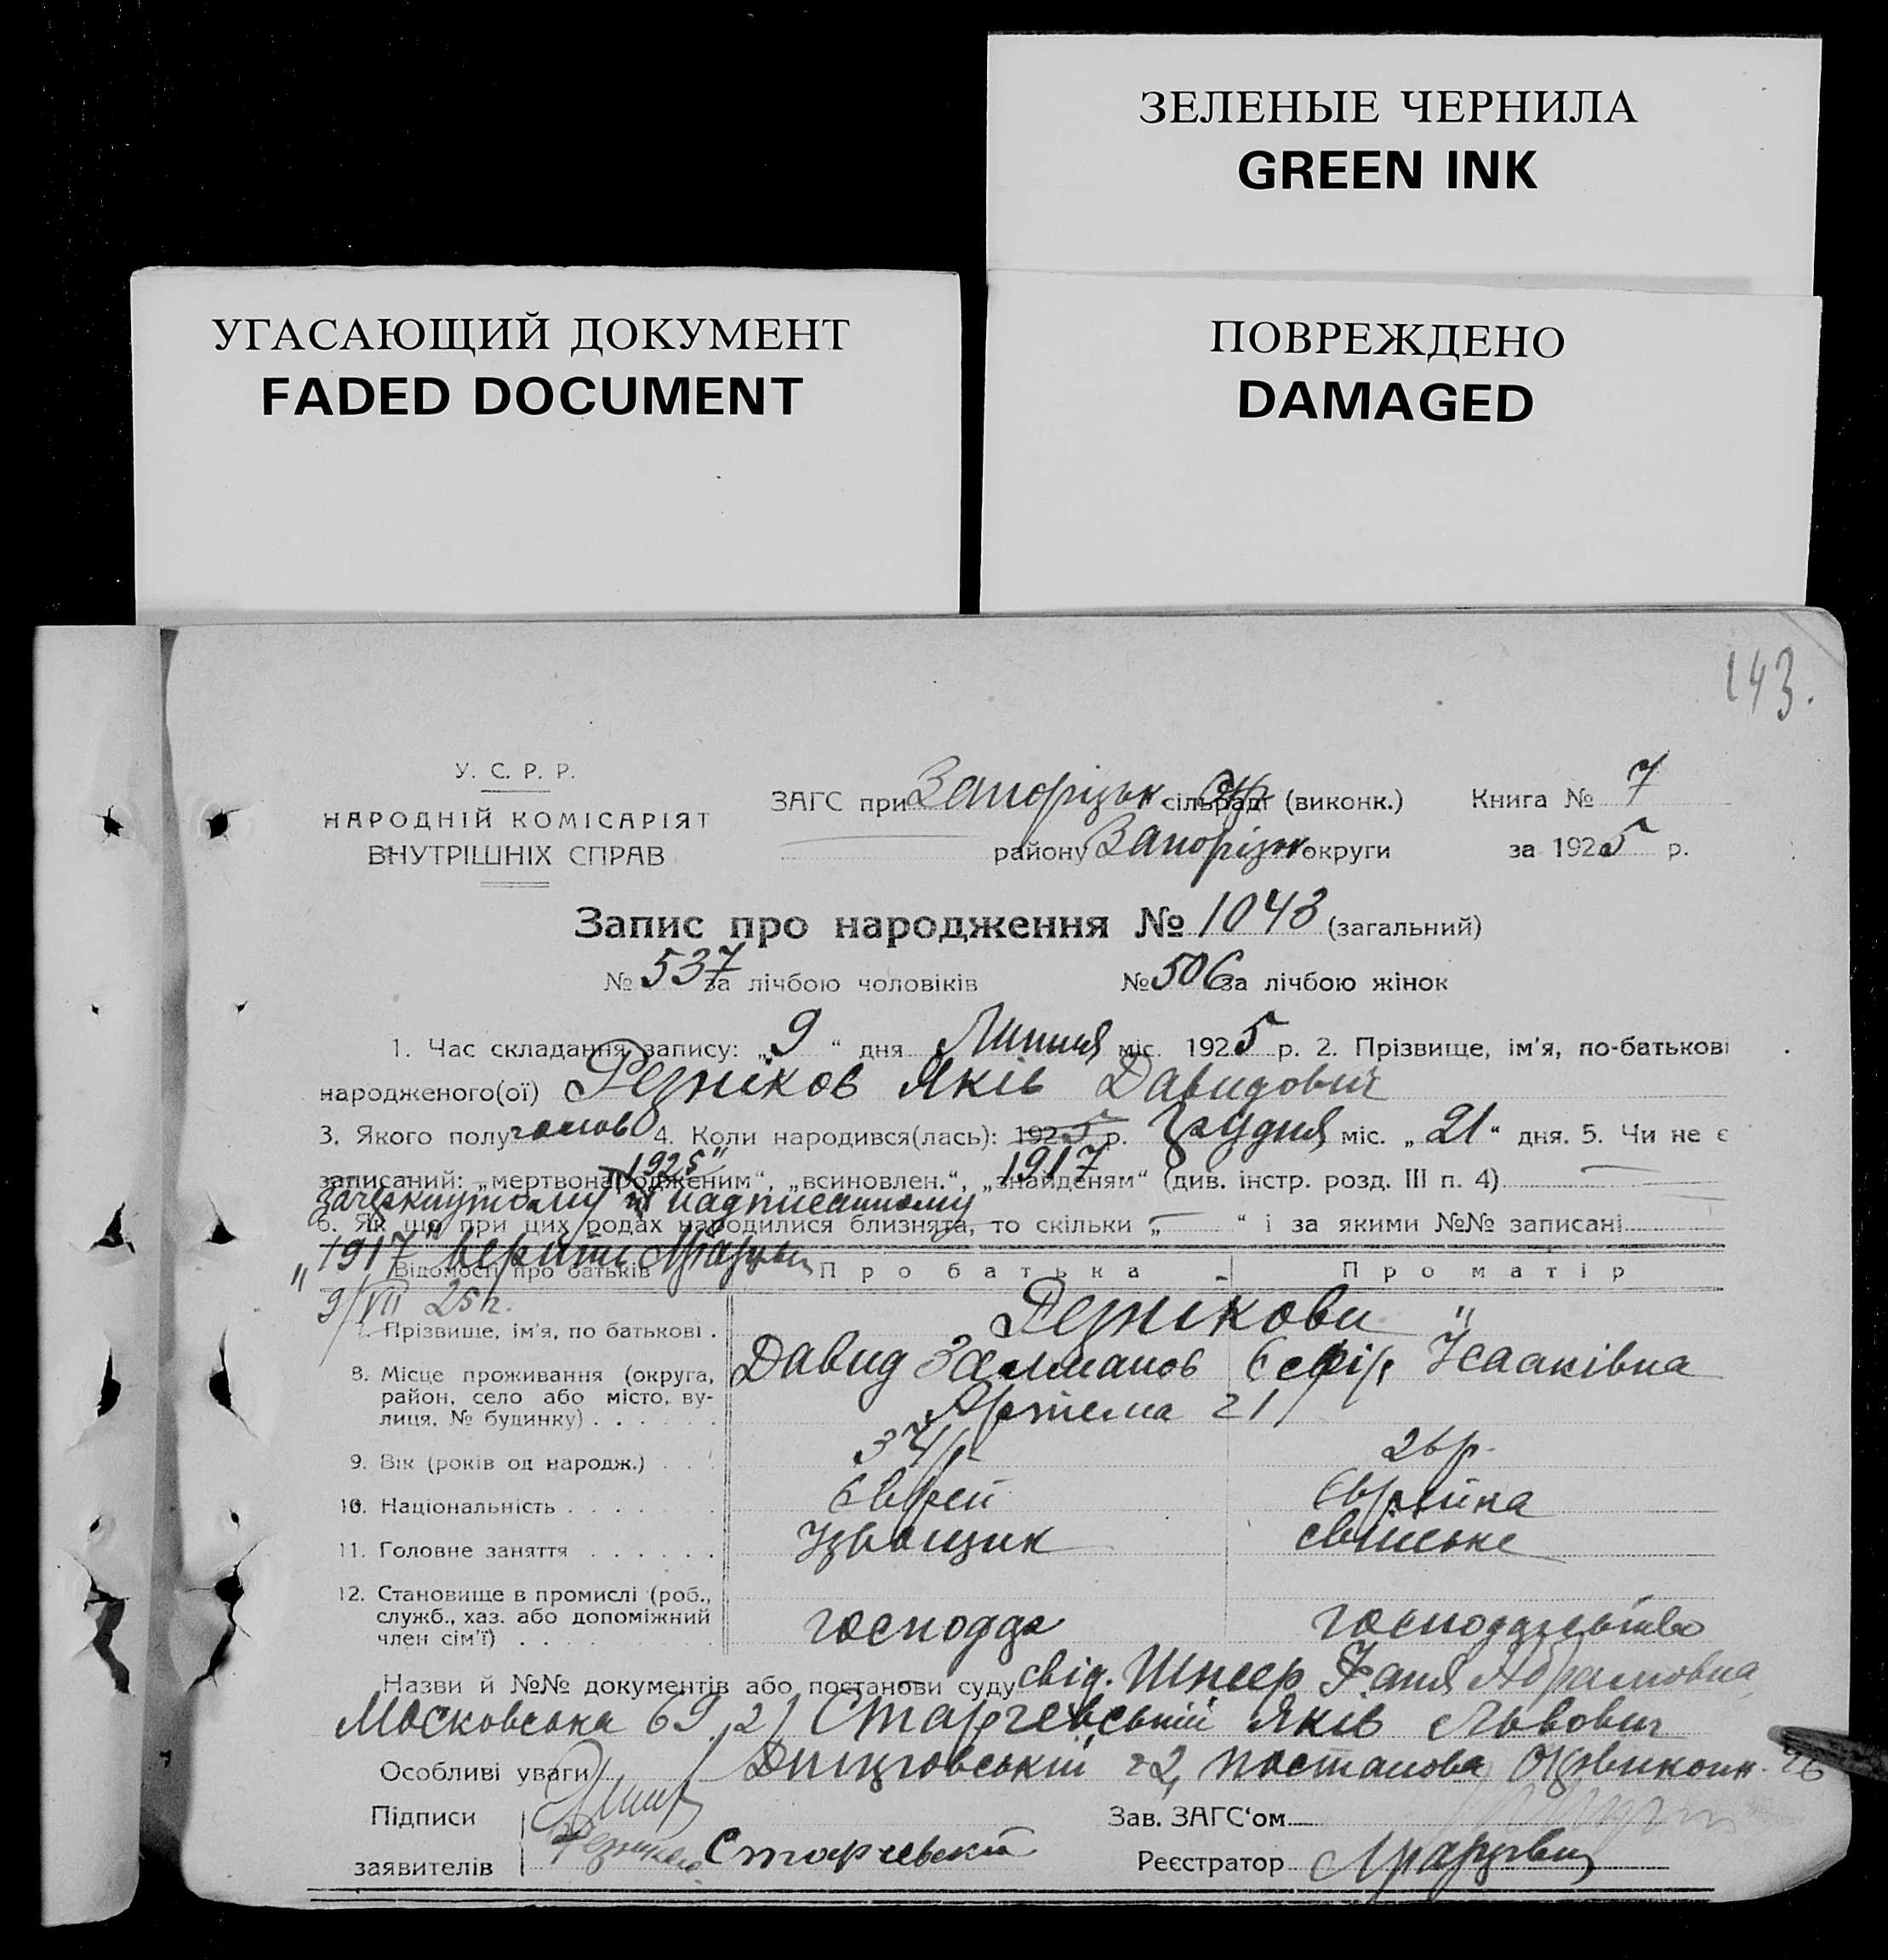 ЗЕЛЕНЫЕ ЧЕРНИЛА
GREEN INK
УГАСАЮЩИЙ ДОКУМЕНТ
FADED DOCUMENT
ПОВРЕЖДЕНО
DAMAGED
143.
У. С. Р. Р.
НАРОДНІЙ КОМІСАРІЯТ
ВНУТРІШНІХ СПРАВ
ЗАГС при Запорізьк сільраді (виконк.) Книга № 7
району Запорізьк округи за 1925 р.
Запис про народження № 1043 (загальний)
№ 537 за лічбою чоловіків № 506 за лічбою жінок
1. Час складання запису: „9“ дня Липня міс. 1925 р. 2. Прізвище, ім'я, по-батькові
народженого(ої) Резніков Яків Давидович
3. Якого полу чолов 4. Коли народився(лась): 1925 р. Грудня міс. „21“ дня. 5. Чи не є
1925" 1917
записаний: „мертвонародженим“, „всиновлен.“, „знайденям“ (див. інстр. розд. III п. 4)
Зачеркнутому и надписанному
6. Як що при цих родах народилися близнята, то скільки „ “ і за якими №№ записані
"1917" верить
Відомості про батьків Про батька Про матір
9/VII 25 г.
7. Прізвище, ім'я, по батькові . Резнікови "
8. Місце проживання (округа, Давид Залманов Есфір Ісааківна
район, село або місто, ву-
лиця, № будинку) . . . . . . Артема 21
9. Вік (років од народж.) . . . 37 р. 26 р.
10. Національність . . . . Єврей Єврейка
11. Головне заняття . . . . . . Ізвощик свійське
12. Становище в промислі (роб.,
служб., хаз. або допоміжний господар господарство
член сім'ї) . . . .
Назви й №№ документів або постанови суду свід. Шпеер Фаня Абрамовна
Московська 69, 2) Старчевський Яків Львович
Особливі уваги 22, постанова Окрвиконк.
Підписи Зав. ЗАГС‘ом
заявителів Старчевский Реєстратор